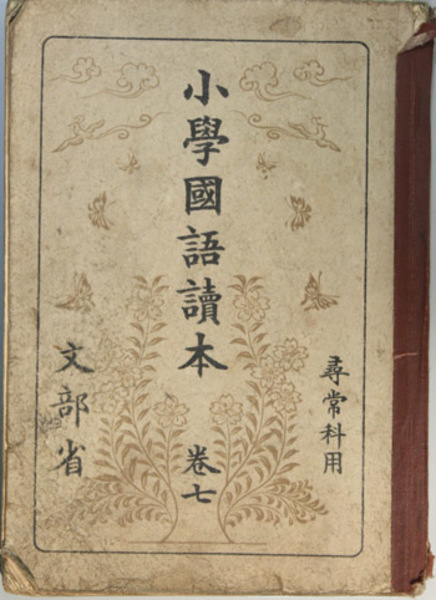 尋常科用
小學國語讀本
卷七
文部省